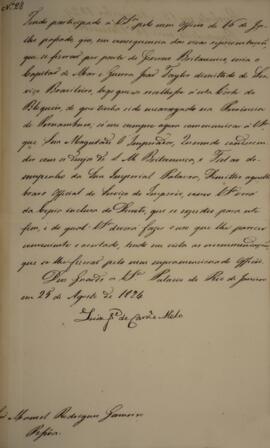 Nº 28
Tendo participado a V.Sª pelo meu Officio de 16 de Ju-
lho passado, que, em consequencia das vivas representações
que se fizerão por parte do Governo Britannico seria o
Capitão de Mar e Guerra João Taylor demittido do Ser-
viço Brasileiro, logo que se recolhesse a esta Corte do
Bloqueio, de que tinha sido encarregado na Provincia
de Pernambuco; só me cumpre agora communicar a V.Sª
que Sua Magestade O Imperador, Querendo condescen-
der com o desejo de S. M. Britannica, e Fiel ao de-
sempenho da Sua Imperial Palavra, Demittio aquelle
bravo Official do Serviço do Imperio, como V.Sª verá
da copia inclusa do Decreto, que se expedio para este
fim, e do qual V.Sª deverá fazer o uso que lhe parecer
conveniente e acertado, tendo em vista as recommendações
que se lhe fizerão pelo meu supramencionado Officio.
Deos Guarde a V.Sª Palacio do Rio de Janeiro
em 28 de Agosto de 1824
Luiz Jº de Carvº e Mello
Manoel Rodrigues Gameiro
Pessoa.